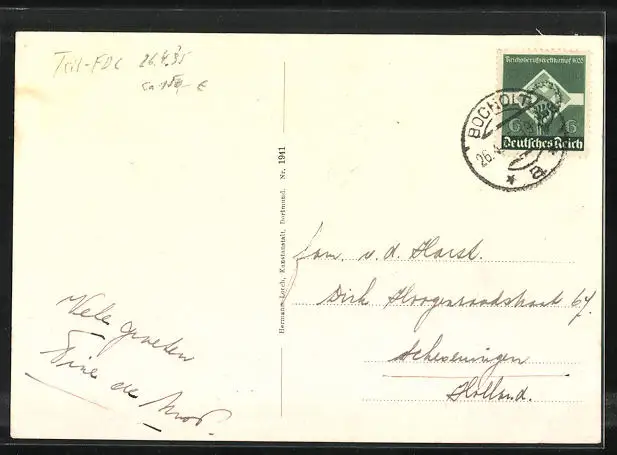 Teil-FDC 26.4.35
ca 15,- €
Reichsberufswettkampf 1935
6 6
Deutsches Reich
BOCHOLT
26.4
Hermann Lorch, Kunstanstalt, Dortmund. Nr. 1941
Fam. v. d. Horst.
Dirk Hoogenraadstraat 67.
Scheveningen
Holland.
Vele groeten
de